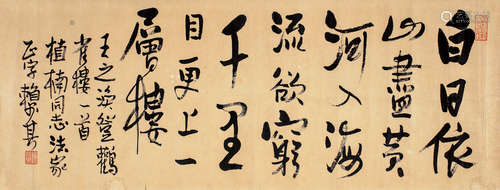 白日依
山盡黃
河入海
流欲窮
千里
目更上一
層樓
王之渙登鸛
雀樓一首
植楠同志法家
正字賴少其